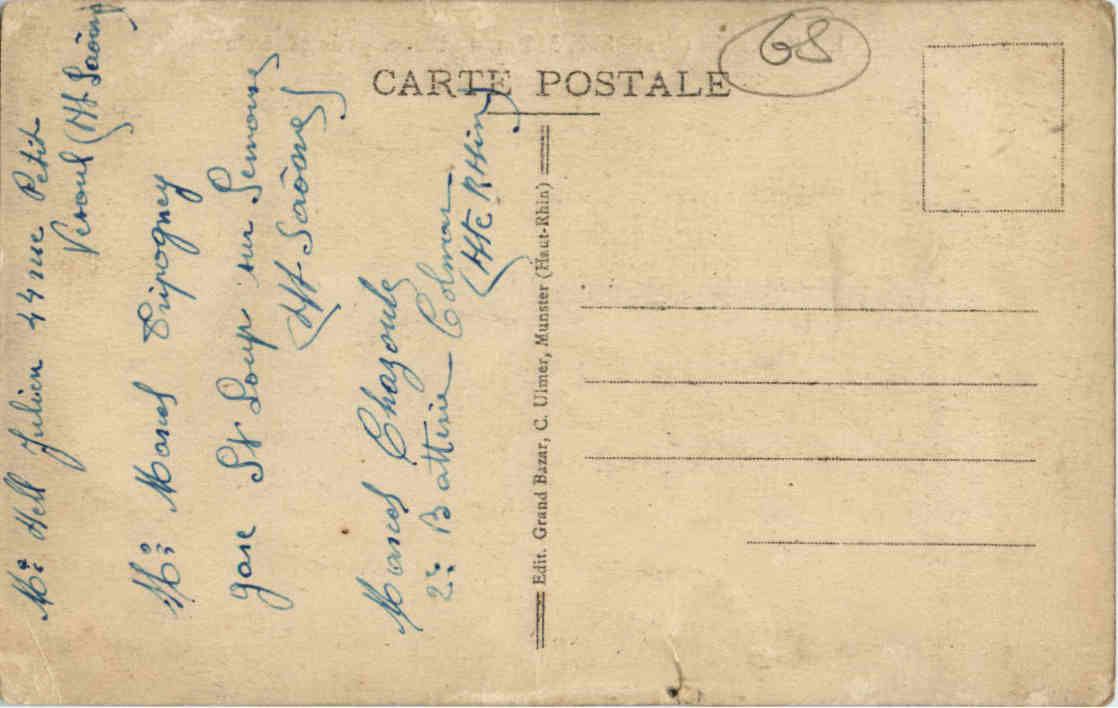 CARTE POSTALE
68
Mr Hell Julien 44 rue Petit
Vesoul (Hte Saône)
Mr Marcel
gare St Loup sur Semouse
(Hte Saône)
Marcel Chazouls
2e Batterie Colmar
(Hte Rhin)
Edit. Grand Bazar, C. Ulmer, Munster (Haut-Rhin)